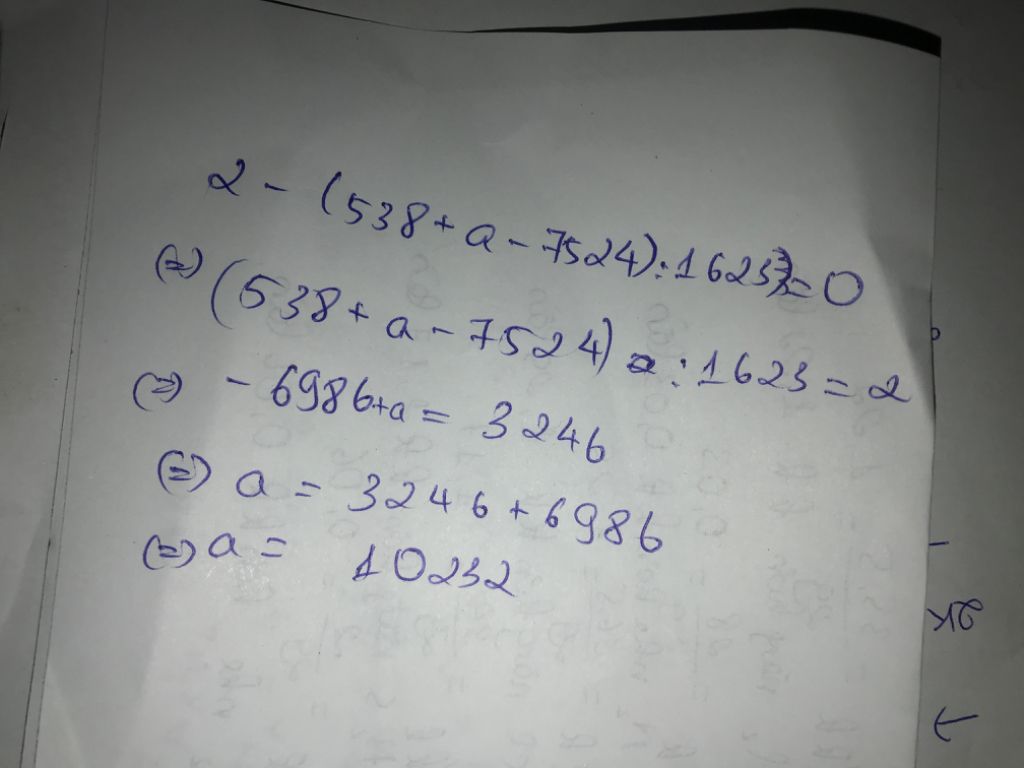 2 - (538 + a - 7524) : 1623 = 0
(=) (538 + a - 7524) : 1623 = 2
(=) - 6986 + a = 3246
(=) a = 3246 + 6986
(=) a = 10232